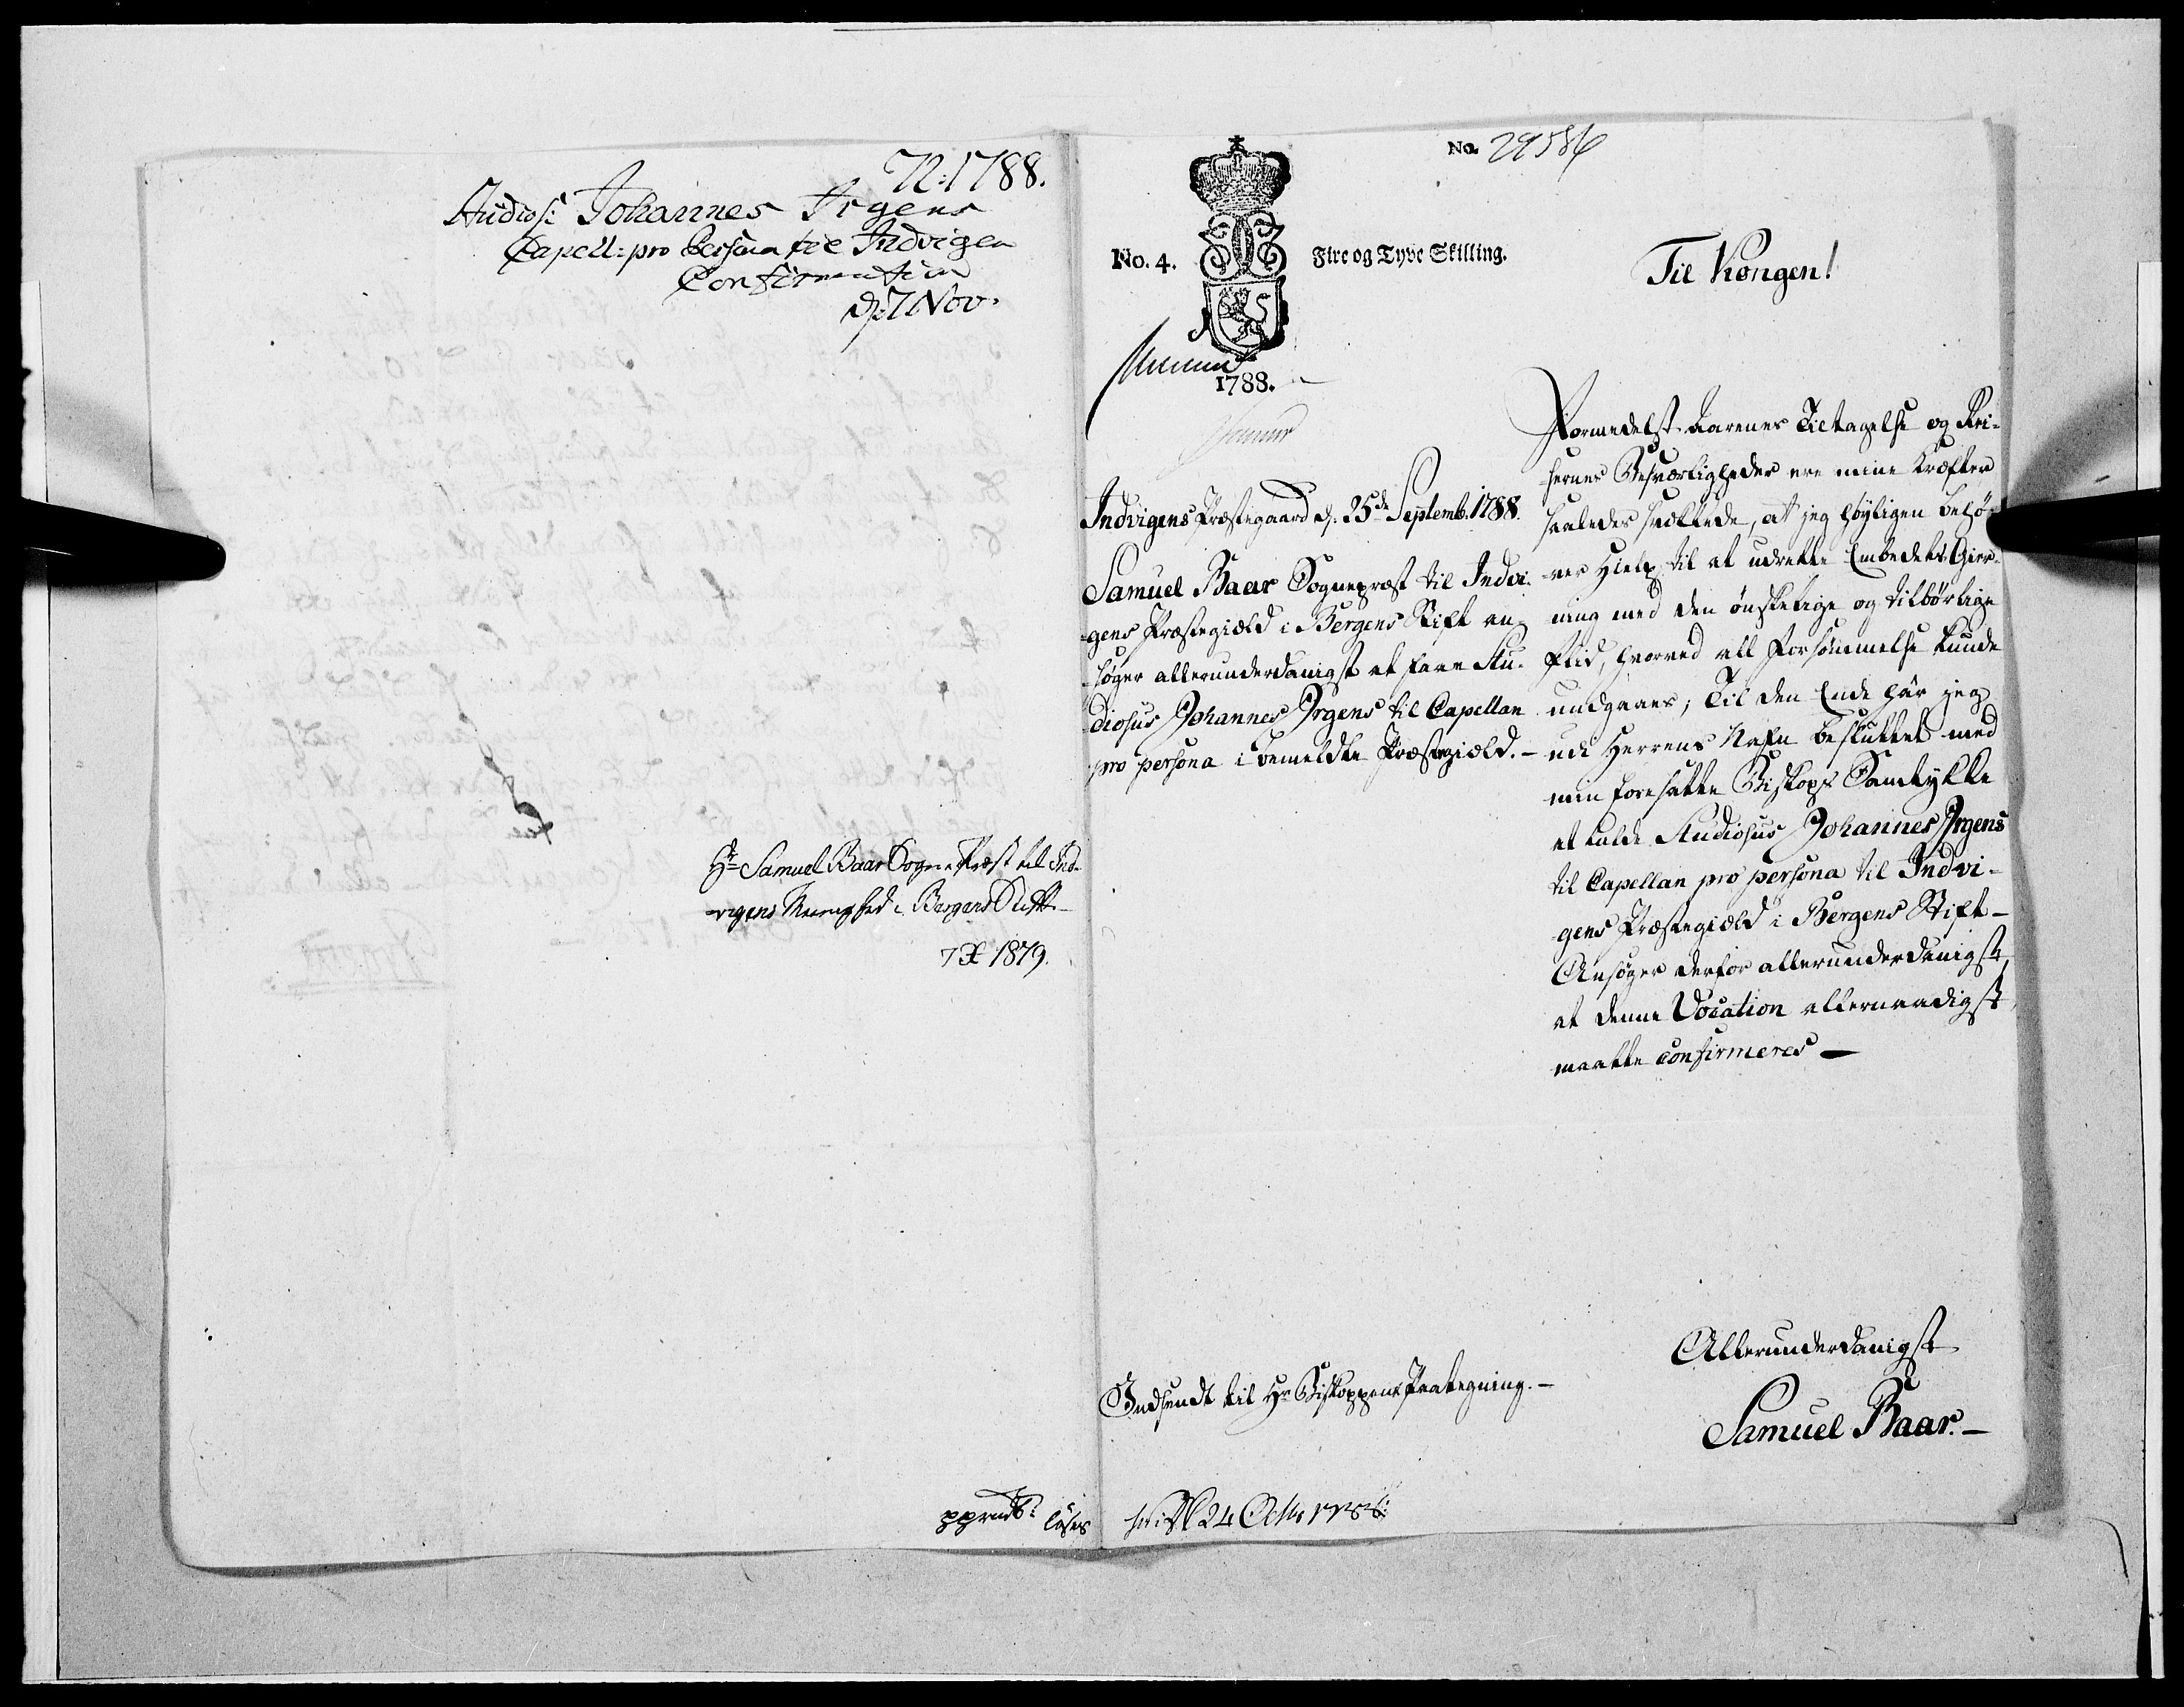 72:1788.
Studios: Johannes Irgens
Capell: pro Persona til Indvigen
Confirmation
d: 7 Nov.
Hr Samuel Baar Sogne Præst til Ind-
vigens Menighed i Bergens Stift
7 X 1879.
No. 29586
No. 4.
Fire og Tyve Skilling.
1788.
Til Kongen!
Indvigens Præstegaard d. 25de Septemb. 1788.
Samuel Baar Sognepræst til Indvi-
gens Præstegield i Bergens Stift an-
søger allerunderdanigst at faae Stu-
diosus Johannes Irgens til Capellan
pro persona i bemeldte Præstegield. -
Formedelst Aarenes Tiltagelse og Rei-
sernes Besværligheder ere mine Kræfter
saaledes svækkede, at jeg høyligen behø-
ver Hielp til at udrette Embedets Gier-
ning med den ønskelige og tilbørlige
Flid, hvorved all Forsømmelse kunde
undgaaes; Til den Ende har jeg
udi Herrens Nafn besluttet med
min foresatte Biskops Samtykke
at kalde Studiosus Johannes Irgens
til Capellan pro persona til Indvi-
gens Præstegield i Bergens Stift -
Ansøger derfor allerunderdanigst,
at denne Vocation allernaadigst
maatte confirmeres -
Allerunderdanigst
Samuel Baar. -
Indsendt til Hr Biskoppens Paategning. -
24 Octbr 1788